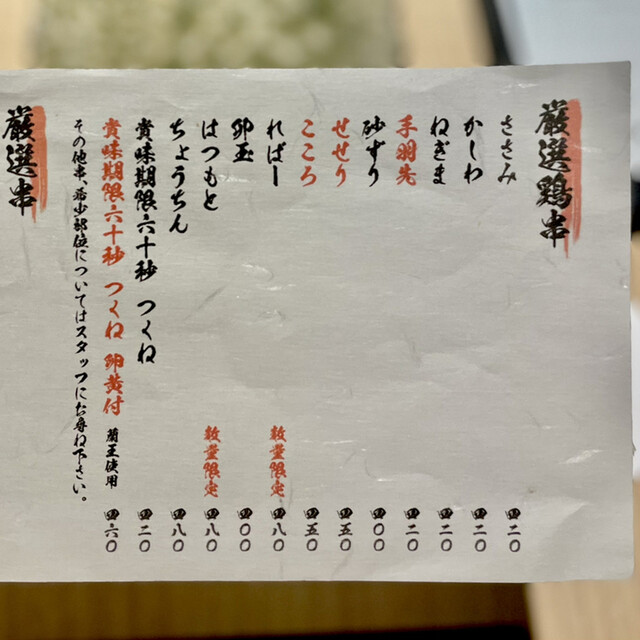 厳選鶏串
ささみ 四二〇
かしわ 四二〇
ねぎま 四二〇
手羽先 四二〇
砂ずり 四〇〇
せせり 四五〇
こころ 四五〇
ればー 数量限定 四八〇
卵玉 四〇〇
はつもと 数量限定 四八〇
ちょうちん 四八〇
賞味期限六十秒 つくね 四二〇
賞味期限六十秒 つくね 卵黄付 蘭王使用 四六〇
その他串、希少部位についてはスタッフにお尋ね下さい。
厳選串